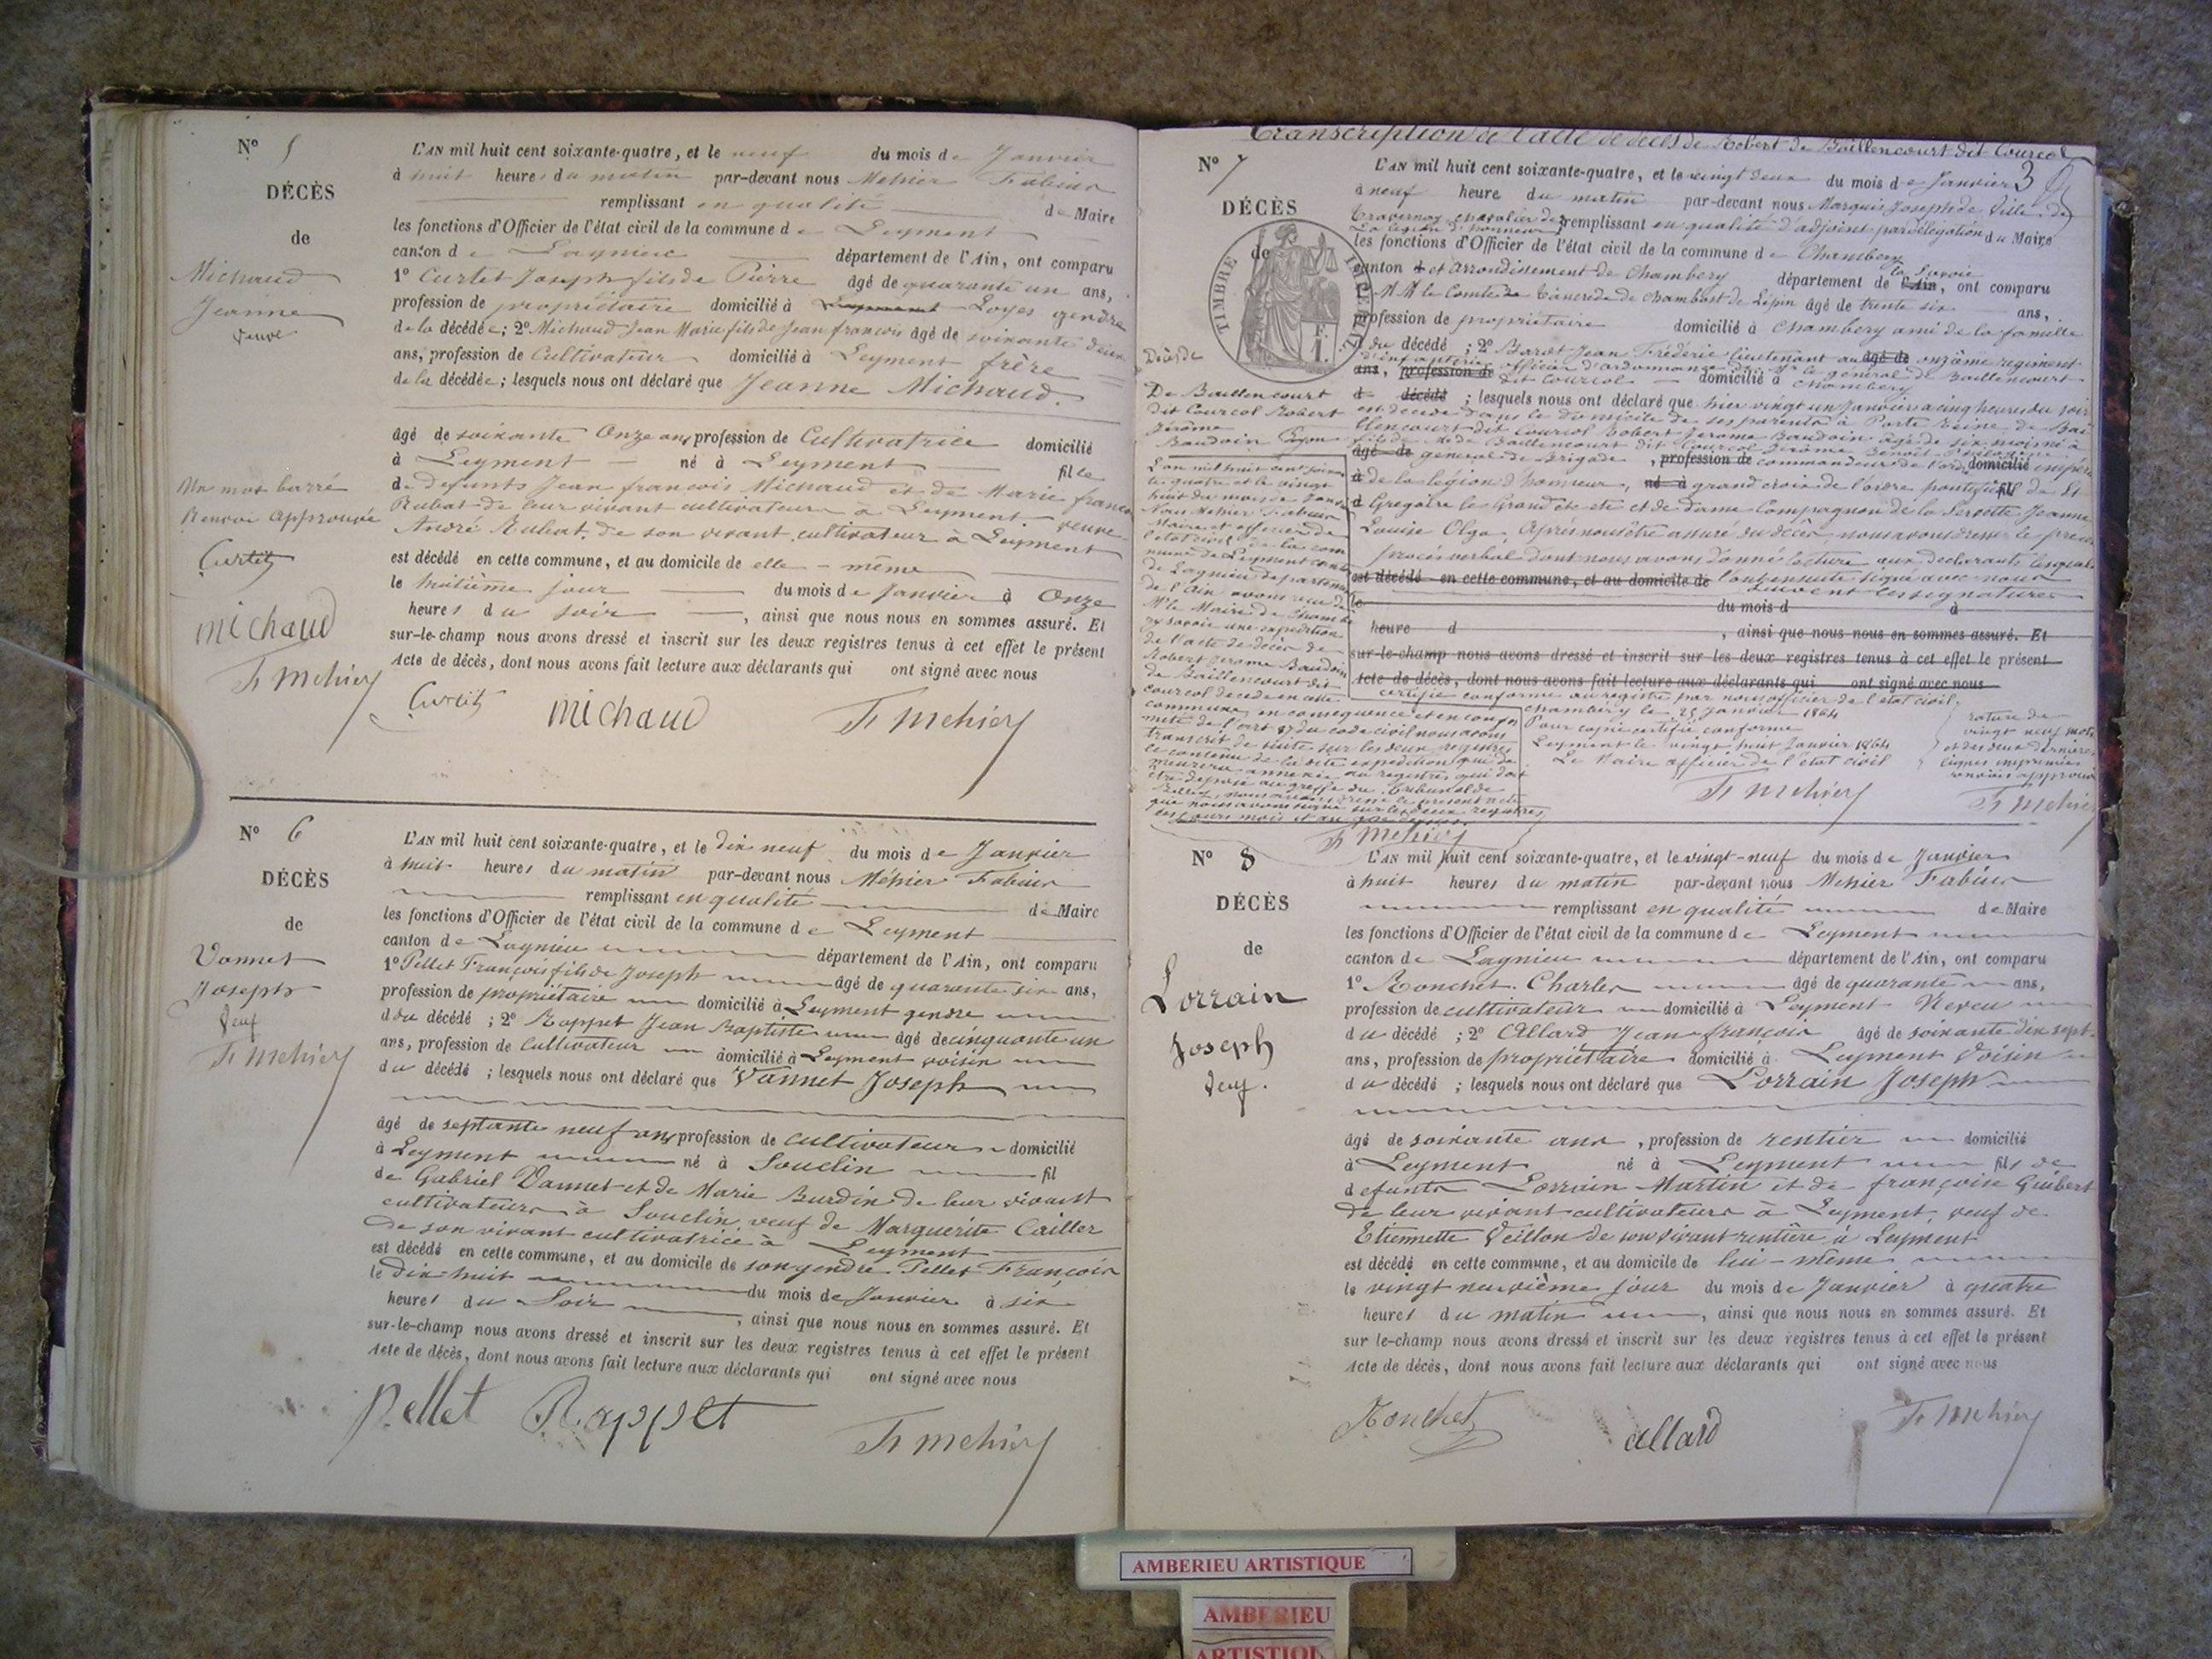 N° 5
DÉCÈS
de
Michaud
Jeanne
veuve
Un mot barré
Renvoi approuvé
Curtet
michaud
F. Mehier
L'AN mil huit cent soixante-quatre, et le neuf du mois de Janvier
à huit heures du matin par-devant nous Mehier Fabien
remplissant en qualité de Maire
les fonctions d'Officier de l'état civil de la commune de Leyment
canton de Lagnieu département de l'Ain, ont comparu
1° Curtet Joseph fils de Pierre âgé de quarante un ans,
profession de propriétaire domicilié à Leyment Loyes gendre
de la décédée; 2° Michaud Jean Marie fils de Jean françois âgé de soixante deux
ans, profession de Cultivateur domicilié à Leyment frère
de la décédée; lesquels nous ont déclaré que Jeanne Michaud
âgé de soixante Onze ans profession de Cultivatrice domicilié
à Leyment né à Leyment fille
de defunts Jean françois Michaud et de Marie
Rubat de leur vivant cultivateurs à Leyment. veuve
André Rubat. de son vivant cultivateur à Leyment
est décédé en cette commune, et au domicile de elle - même
le huitième jour du mois de Janvier à Onze
heures du soir, ainsi que nous nous en sommes assuré. Et
sur-le-champ nous avons dressé et inscrit sur les deux registres tenus à cet effet le présent
Acte de décès, dont nous avons fait lecture aux déclarants qui ont signé avec nous
Curtet michaud F. Mehier
N° 6
DÉCÈS
de
Vannet
Joseph
Veuf
F. Mehier
L'AN mil huit cent soixante-quatre, et le dix neuf du mois de Janvier
à huit heures du matin par-devant nous Méhier Fabien
remplissant en qualité de Maire
les fonctions d'Officier de l'état civil de la commune de Leyment
canton de Lagnieu département de l'Ain, ont comparu
1° Pellet François fils de Joseph âgé de quarante six ans,
profession de propriétaire domicilié à Leyment gendre
du décédé ; 2° Rappet Jean Baptiste âgé de cinquante un
ans, profession de Cultivateur domicilié à Leyment voisin
du décédé ; lesquels nous ont déclaré que Vannet Joseph
âgé de septante neuf ans profession de cultivateur domicilié
à Leyment né à Souclin fil
de Gabriel Vannet et de Marie Burdin de leur vivant
cultivateurs à Souclin, veuf de Marguerite Cailler
de son vivant cultivatrice à Leyment
est décédé en cette commune, et au domicile de son gendre Pellet François
le Dix-huit du mois de Janvier à six
heures du Soir, ainsi que nous nous en sommes assuré. Et
sur-le-champ nous avons dressé et inscrit sur les deux registres tenus à cet effet le présent
Acte de décès, dont nous avons fait lecture aux déclarants qui ont signé avec nous
Pellet Rappet F. Mehier
Transcription de l'acte de décès de Robert de Baillencourt dit Courcol
3
N° 7
DÉCÈS
de
TIMBRE IMPÉRIAL
1 F.
Décès de
De Baillencourt
dit Courcol Robert
Jérôme
Baudoin
L'an mil huit cent soixan
te quatre et le vingt
huit du mois de Janv
Nous Mehier Fabien
Maire et officier de
l'etat civil de la com
mune de Leyment canton
de Lagnieu departement
de l'Ain avons reçu de
Mr le Maire de Chambe
ry savoie une expédition
de l'acte de décès de
Robert Jerome Baudoin
de Baillencourt dit
courcol décédé en cette
commune, en consequence et en confor
mité de l'art 87 du code civil nous avons
transcrit de suite sur les deux registres
le contenu de la dite expedition qui de
meurera annexée au registre qui doit
être déposé au greffe du Tribunal de
Belley, nous avons dressé le présent acte
que nous avons signé sur les deux registres
les jours mois et an que dessus
F. Mehier
L'AN mil huit cent soixante-quatre, et le vingt deux du mois de Janvier
à neuf heure du matin par-devant nous Marquis Joseph de Ville de
Travernay chevalier de la Légion d'honneur remplissant en qualité d'adjoint par délégation du Maire
les fonctions d'Officier de l'état civil de la commune de Chambery
canton et arrondissement de Chambery département de l'Ain la Savoie, ont comparu
1° M M le Comte Tancrede de Chambost de Lépin âgé de trente six ans,
profession de propriétaire domicilié à Chambery ami de la famille
du décédé ; 2° Bardt Jean Fréderic lieutenant au âgé de onzième regiment
d'infanterie ans, profession de officier d'ordonnance de Mr le général de Baillencourt
dit Courcol domicilié à Chambery
d décédé ; lesquels nous ont déclaré que hier vingt un Janvier à cinq heures du soir
est décédé dans le domicile de ses parents à Porte Reine de Bai
llencourt dit Courcol Robert Jerome Baudoin âgé de six mois né à
fils de de Baillencourt dit Courcol Jérôme Benoit
âgé de general de Brigade, profession de commandeur de l'ordre domicilié impér
à de la légion d'honneur, né à grand croix de l'ordre pontifical fil de St
d Gregoire le Grand et de dame Compagnon de la Servette Jeanne
Louise Olga. Après nous être assuré du décès, nous avons dressé le présent
procès verbal dont nous avons donné lecture aux declarants lesquels
est décédé en cette commune, et au domicile de l'ont ensuite signé avec nous
suivent les signatures
le du mois d à
heure d , ainsi que nous nous en sommes assuré. Et
sur-le-champ nous avons dressé et inscrit sur les deux registres tenus à cet effet le présent
Acte de décès, dont nous avons fait lecture aux déclarants qui ont signé avec nous
certifié conforme au registre par nous officier de l'état civil
chambery le 25 janvier 1864
Pour copie certifiée conforme
Leyment le vingt huit Janvier 1864
Le Maire officier de l'état civil
F. Mehier
rature de
vingt neuf mots
et des deux dernières
lignes imprimées
renvois approuvé
F. Mehier
N° 8
DÉCÈS
de
Lorrain
Joseph
veuf.
L'AN mil huit cent soixante-quatre, et le vingt-neuf du mois de Janvier
à huit heures du matin par-devant nous Mehier Fabien
remplissant en qualité de Maire
les fonctions d'Officier de l'état civil de la commune de Leyment
canton de Lagnieu département de l'Ain, ont comparu
1° Ronchet Charles âgé de quarante ans,
profession de cultivateur domicilié à Leyment Neveu
du décédé ; 2° Allard Jean françois âgé de soixante dix sept
ans, profession de propriétaire domicilié à Leyment Voisin
du décédé ; lesquels nous ont déclaré que Lorrain Joseph
âgé de soixante ans, profession de rentier domicilié
à Leyment né à Leyment fils de
defunts Lorrain Martin et de françoise Guibert
de leur vivant cultivateurs à Leyment, veuf de
Etiennette Veillon de son vivant rentière à Leyment
est décédé en cette commune, et au domicile de lui - même
le vingt neuvième jour du mois de Janvier à quatre
heures du matin, ainsi que nous nous en sommes assuré. Et
sur le-champ nous avons dressé et inscrit sur les deux registres tenus à cet effet le présent
Acte de décès, dont nous avons fait lecture aux déclarants qui ont signé avec nous
Ronchet allard F. Mehier
AMBERIEU ARTISTIQUE
AMBERIEU
ARTISTIQU